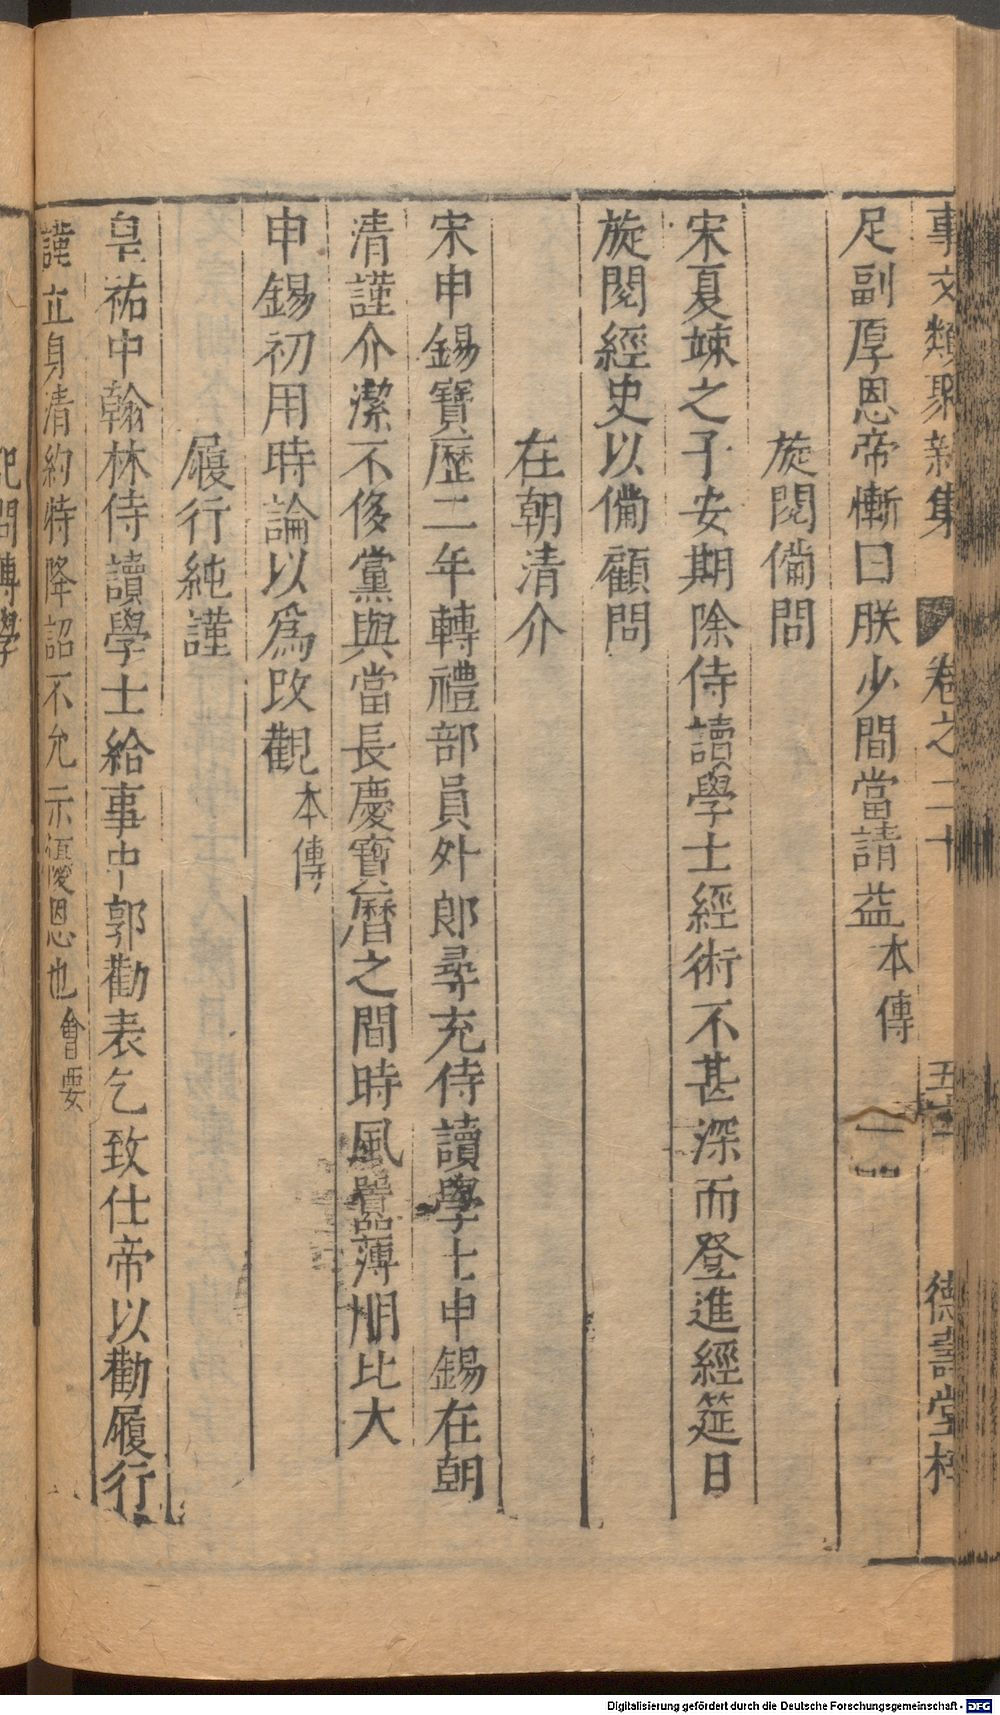 事文類聚新集 卷之二十 五十一 德壽堂梓
足副厚恩帝慚曰朕少間當請益本傳
旋閱備問
宋夏竦之子安期除侍讀學士經術不甚深而登進經筵日
旋閱經史以備顧問
在朝清介
宋申錫寶歷二年轉禮部員外郎尋充侍讀學士申錫在朝
清謹介潔不侈黨與當長慶寶曆之間時風囂薄朋比大
申錫初用時論以爲改觀本傳
履行純謹
皇祐中翰林侍讀學士給事中郭勸表乞致仕帝以勸履行
謹立身清約特降詔不允示優恩也會要
問博學
Digitalisierung gefördert durch die Deutsche Forschungsgemeinschaft - DFG